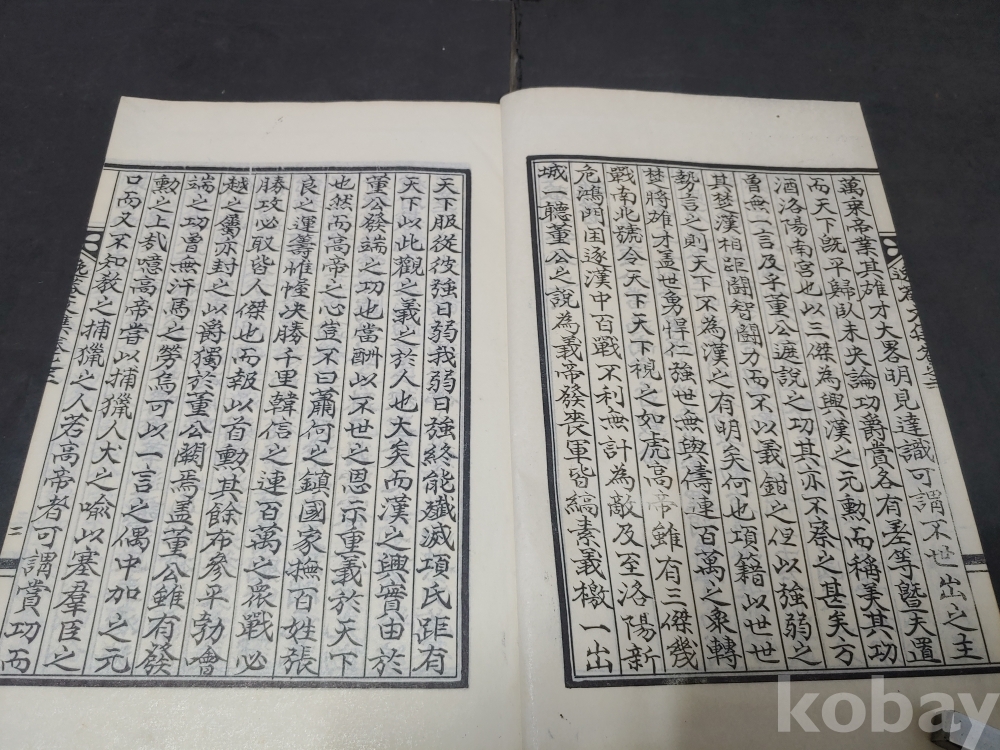 萬乘帝業其雄才大畧明見達識可謂不世出之主
而天下旣平歸臥未央論功爵賞各有差等曁夫置
酒洛陽南宮也以三傑爲興漢之元勳而稱美其功
曾無一言及乎董公遮說之功其亦不察之甚矣方
其楚漢相距鬪智鬪力而不以義鉗之但以強弱之
勢言之則天下不爲漢之有明矣何也項籍以世世
楚將雄才盖世勇悍仁強世無與儔連百萬之衆轉
戰南北號令天下天下視之如虎高帝雖有三傑幾
危鴻門困逐漢中百戰不利無計爲敵及至洛陽新
城一聽董公之說爲義帝發喪軍皆縞素義檄一出
天下服從彼強日弱我弱日強終能殲滅項氏距有
天下以此觀之義之於人也大矣而漢之興實由於
董公發端之功也當酬以不世之恩示重義於天下
也然而高帝之心豈不曰蕭何之鎭國家撫百姓張
良之運籌惟幄决勝千里韓信之連百萬之衆戰必
勝攻必取皆人傑也而報以首勳其餘布參平勃噲
越之屬亦封之以爵獨於董公闕焉盖董公雖有發
端之功曾無汗馬之勞焉可以一言之偶中加之元
勳之上哉噫高帝嘗以捕獵人犬之喩以塞羣臣之
口而又不知敎之捕獵之人若高帝者可謂賞功而
二
kobay